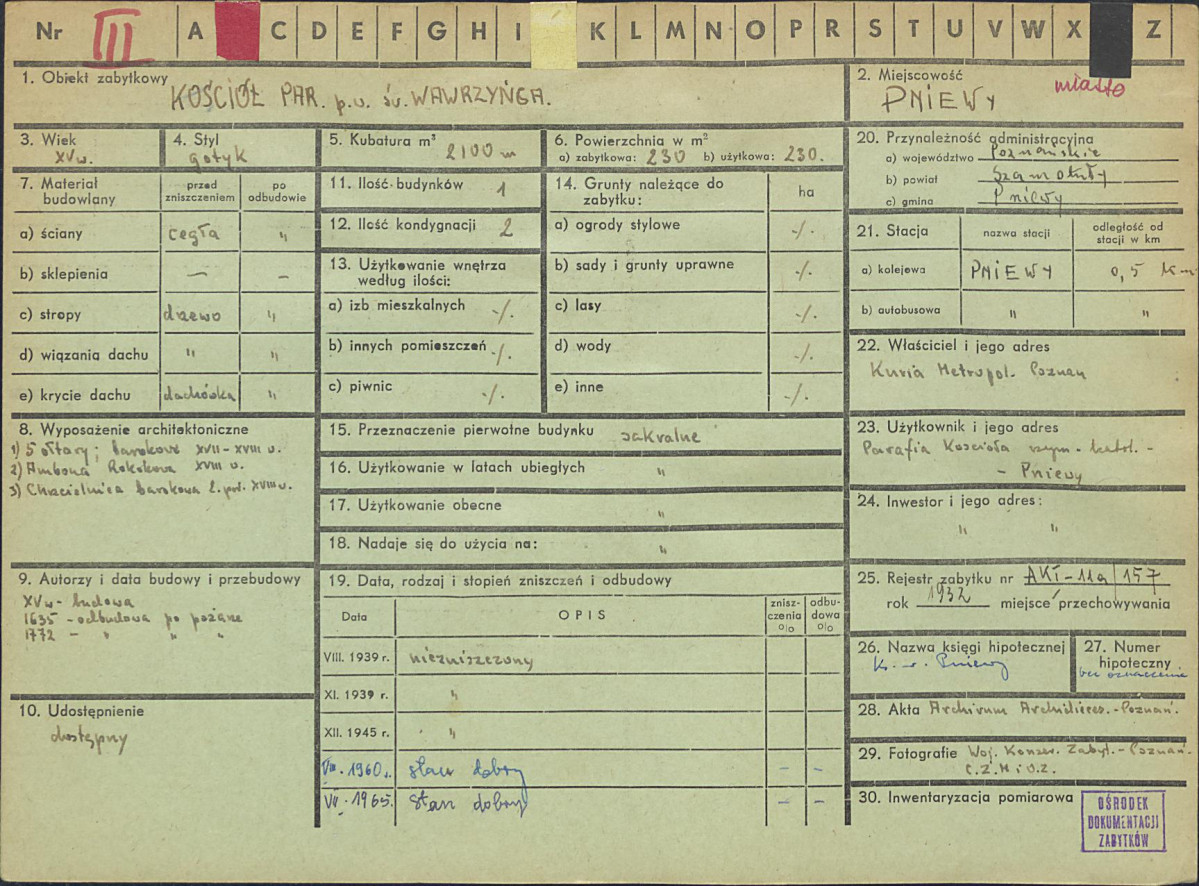 Nr III A C D E F G H I K L M N O P R S T U V W X Z
1. Obiekt zabytkowy
KOŚCIÓŁ PAR. p.w. św. WAWRZYŃCA.
2. Miejscowość
PNIEWY miasto
3. Wiek
XVw.
4. Styl
gotyk
5. Kubatura m³
2100 m
6. Powierzchnia w m²
a) zabytkowa: 230 b) użytkowa: 230.
7. Materiał budowlany
przed zniszczeniem
po odbudowie
a) ściany cegła "
b) sklepienia — —
c) stropy drzewo "
d) wiązania dachu " "
e) krycie dachu dachówka "
8. Wyposażenie architektoniczne
1) 5 ołtarzy; barokowe XVII-XVIII w.
2) Ambona Rokokowa XVIII w.
3) Chrzcielnica barokowa 2. poł. XVIII w.
9. Autorzy i data budowy i przebudowy
XVw - budowa
1635 - odbudowa po pożarze
1772 - " " "
10. Udostępnienie
dostępny
11. Ilość budynków 1
12. Ilość kondygnacji 2
13. Użytkowanie wnętrza
według ilości:
a) izb mieszkalnych -/.
b) innych pomieszczeń -/.
c) piwnic -/.
14. Grunty należące do
zabytku:
ha
a) ogrody stylowe -/.
b) sady i grunty uprawne -/.
c) lasy -/.
d) wody -/.
e) inne -/.
15. Przeznaczenie pierwotne budynku sakralne
16. Użytkowanie w latach ubiegłych "
17. Użytkowanie obecne "
18. Nadaje się do użycia na: "
19. Data, rodzaj i stopień zniszczeń i odbudowy
Data
OPIS
znisz-
czenia
o|o
odbu-
dowa
o|o
VIII. 1939 r. niezniszczony
XI. 1939 r. "
XII. 1945 r. "
VIII. 1960 r. stan dobry - -
VII. 1965. stan dobry - -
20. Przynależność administracyjna
a) województwo Poznańskie
b) powiat Szamotuły
c) gmina Pniewy
21. Stacja
nazwa stacji
odległość od
stacji w km
a) kolejowa PNIEWY 0,5 km
b) autobusowa " "
22. Właściciel i jego adres
Kuria Metropol. Poznań
23. Użytkownik i jego adres
Parafia Kościoła rzym. katol. -
- Pniewy
24. Inwestor i jego adres:
" "
25. Rejestr zabytku nr AKI-11a/157
rok 1932 miejsce przechowywania
26. Nazwa księgi hipotecznej
K. w. Pniewy
27. Numer
hipoteczny
bez oznaczenia
28. Akta Archivum Archidieces. - Poznań.
29. Fotografie Woj. Konser. Zabyt. - Poznań.
C.Z.M i O.Z.
30. Inwentaryzacja pomiarowa
OŚRODEK
DOKUMENTACJI
ZABYTKÓW